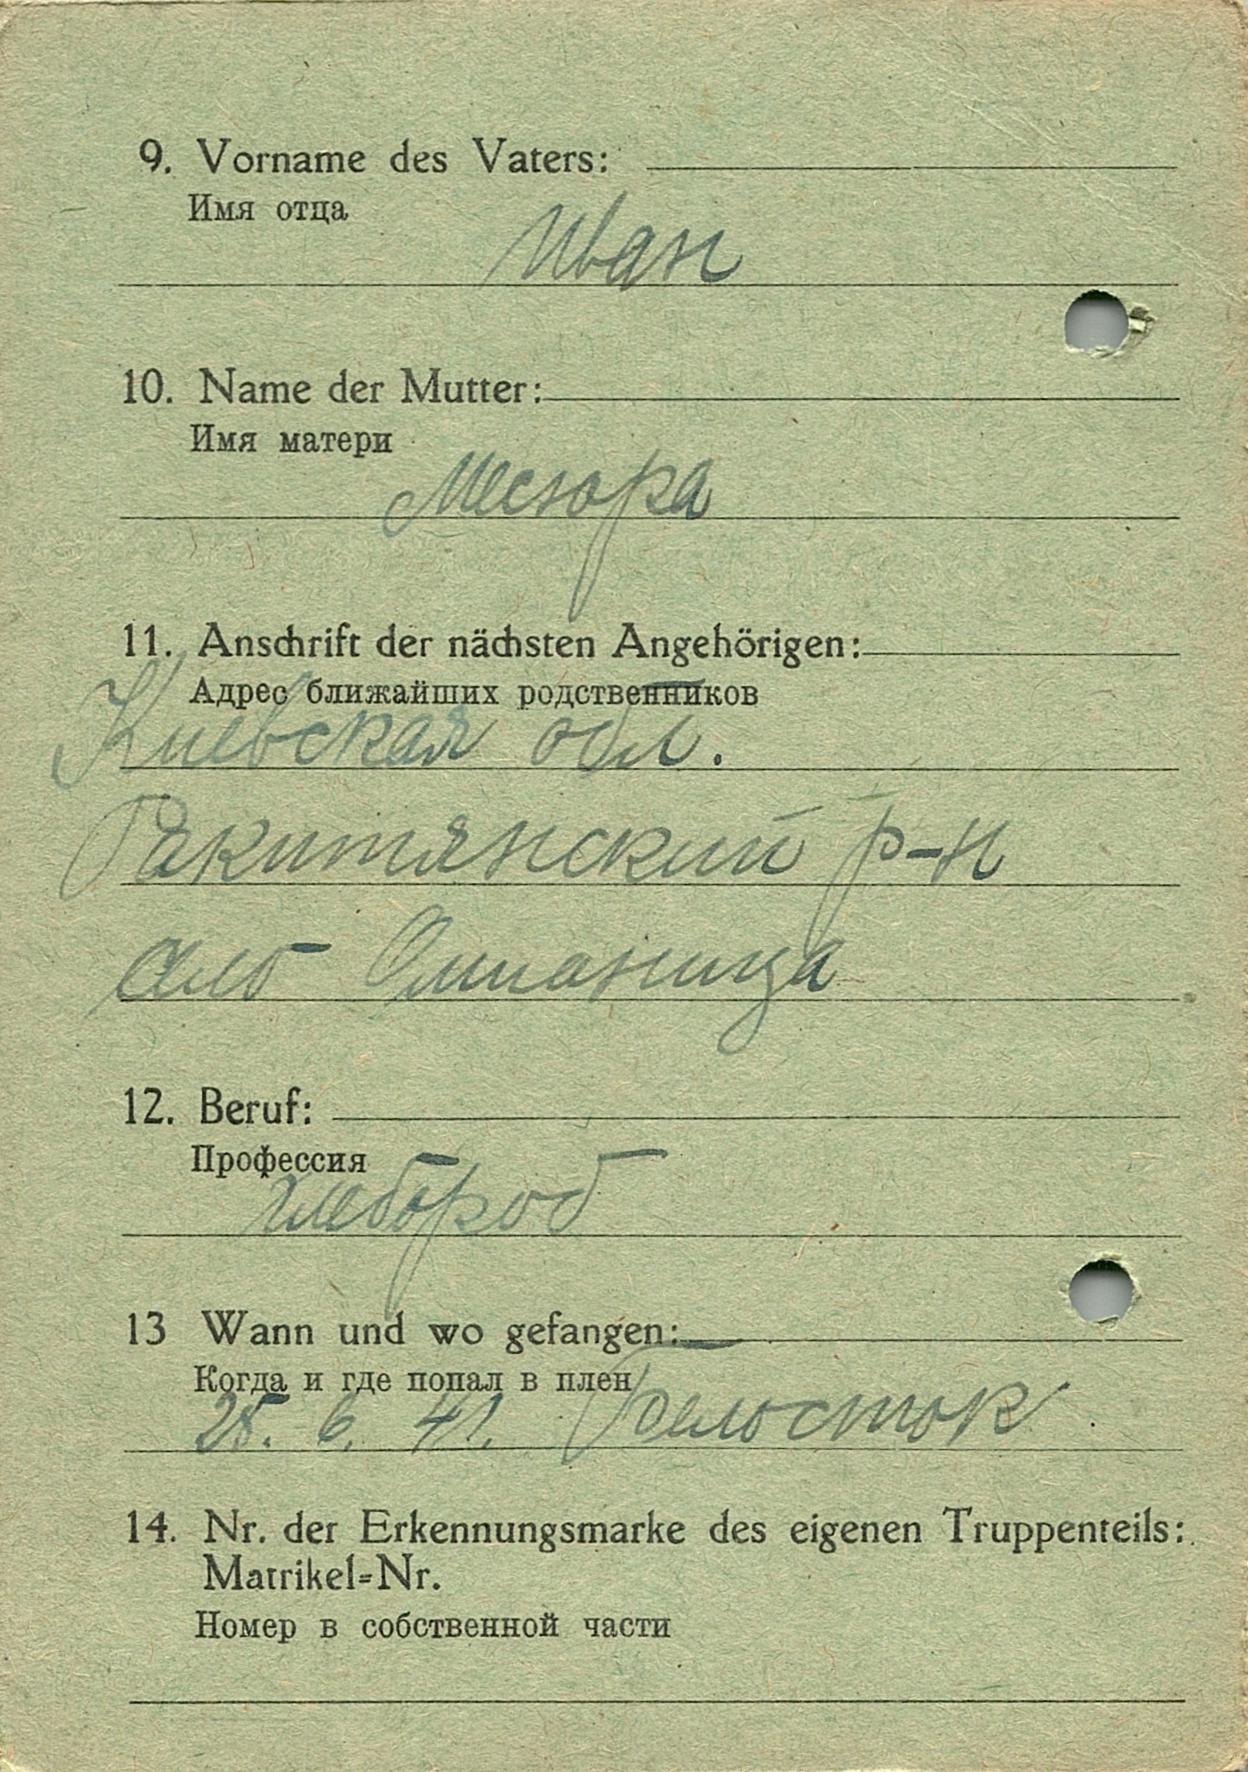 9. Vorname des Vaters:
Имя отца
Иван
10. Name der Mutter:
Имя матери
11. Anschrift der nächsten Angehörigen:
Адрес ближайших родственников
Киевская обл.
Ракитянский р-н
село
12. Beruf:
Профессия
хлебороб
13 Wann und wo gefangen:
Когда и где попал в плен
28. 6. 41. Белосток
14. Nr. der Erkennungsmarke des eigenen Truppenteils:
Matrikel=Nr.
Номер в собственной части